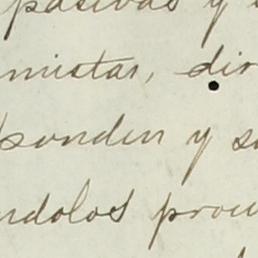 pasivas y
mistar, dir
ponden y s
ndolos prou